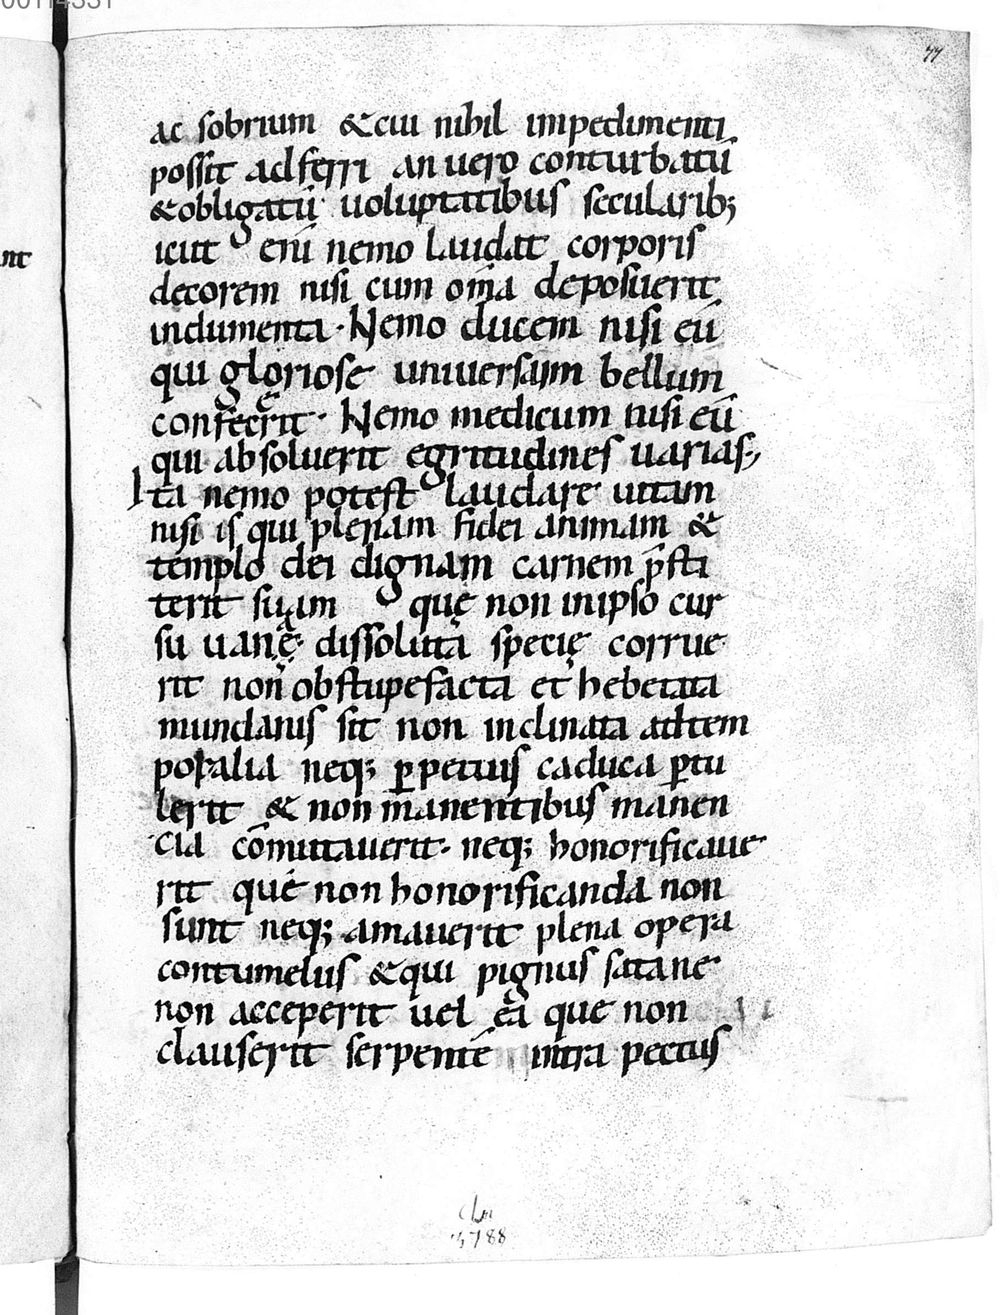 00114331
77
nt
ac sobrium & cui nihil impedimenti
possit adferri an uero conturbatū
& obligatū uoluptatibus secularib;
icut enī nemo laudat corporis
decorem nisi cum om̄a deposuerit
indumenta · Nemo ducem nisi eū
qui gloriose uniuersum bellum
confecerit · Nemo medicum nisi eū
qui absoluerit egritudines uarias
Ita nemo potest laudare uitam
nisi is qui plenam fidei animam &
templo dei dignam carnem p̄sti
terit suam quę non in ipso cur
su uanę dissoluta specię corrue
rit non obstupefacta et hebetata
mundanis sit non inclinata ad tem
poralia neq; ꝑpetuis caduca ꝑtu
lerit & non manentibus manen
cia cōmutauerit · neq; honorificaue
rit que non honorificanda non
sunt neq; amauerit plena opera
contumeliis & qui pignus satane
non acceperit uel eā que non
clauserit serpentē intra pectus